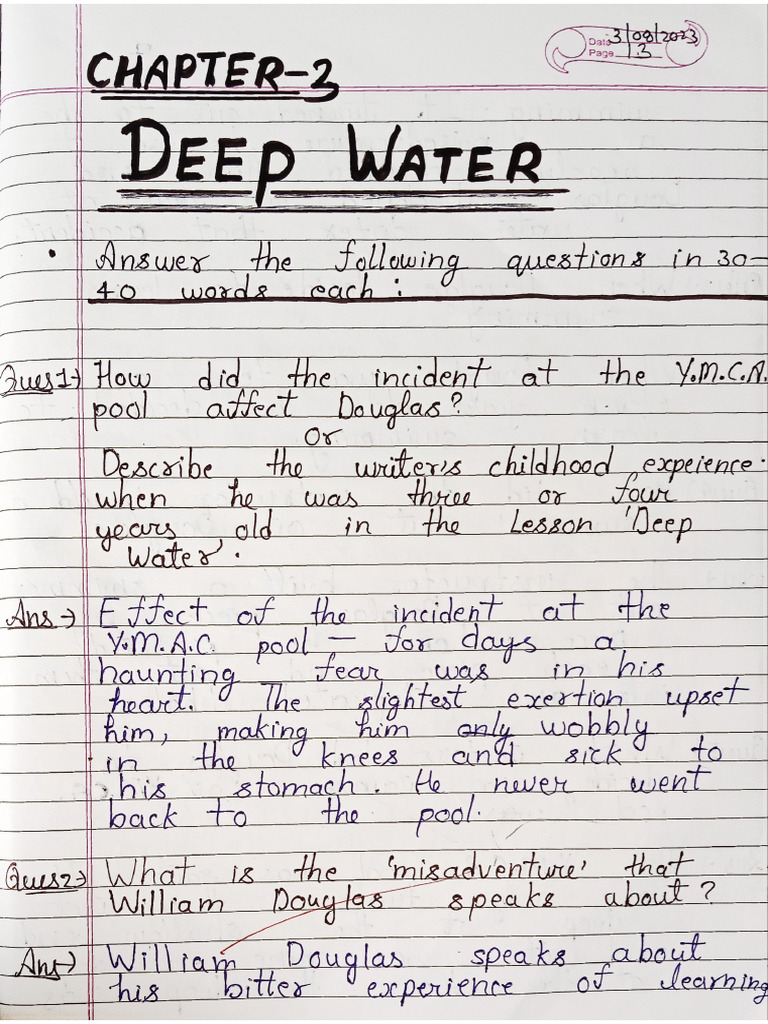 Date 3/08/2023
Page 3
CHAPTER-3
DEEP WATER
• Answer the following questions in 30-
40 words each:
Ques1→ How did the incident at the Y.M.C.A.
pool affect Douglas?
Or
Describe the writer's childhood expeience
when he was three or four
years old in the Lesson 'Deep
Water'.
Ans→ Effect of the incident at the
Y.M.A.C. pool — for days a
haunting fear was in his
heart. The slightest exertion upset
him, making him only wobbly
in the knees and sick to
his stomach. He never went
back to the pool.
Ques2→ What is the 'misadventure' that
William Douglas speaks about?
Ans→ William Douglas speaks about
his bitter experience of learning